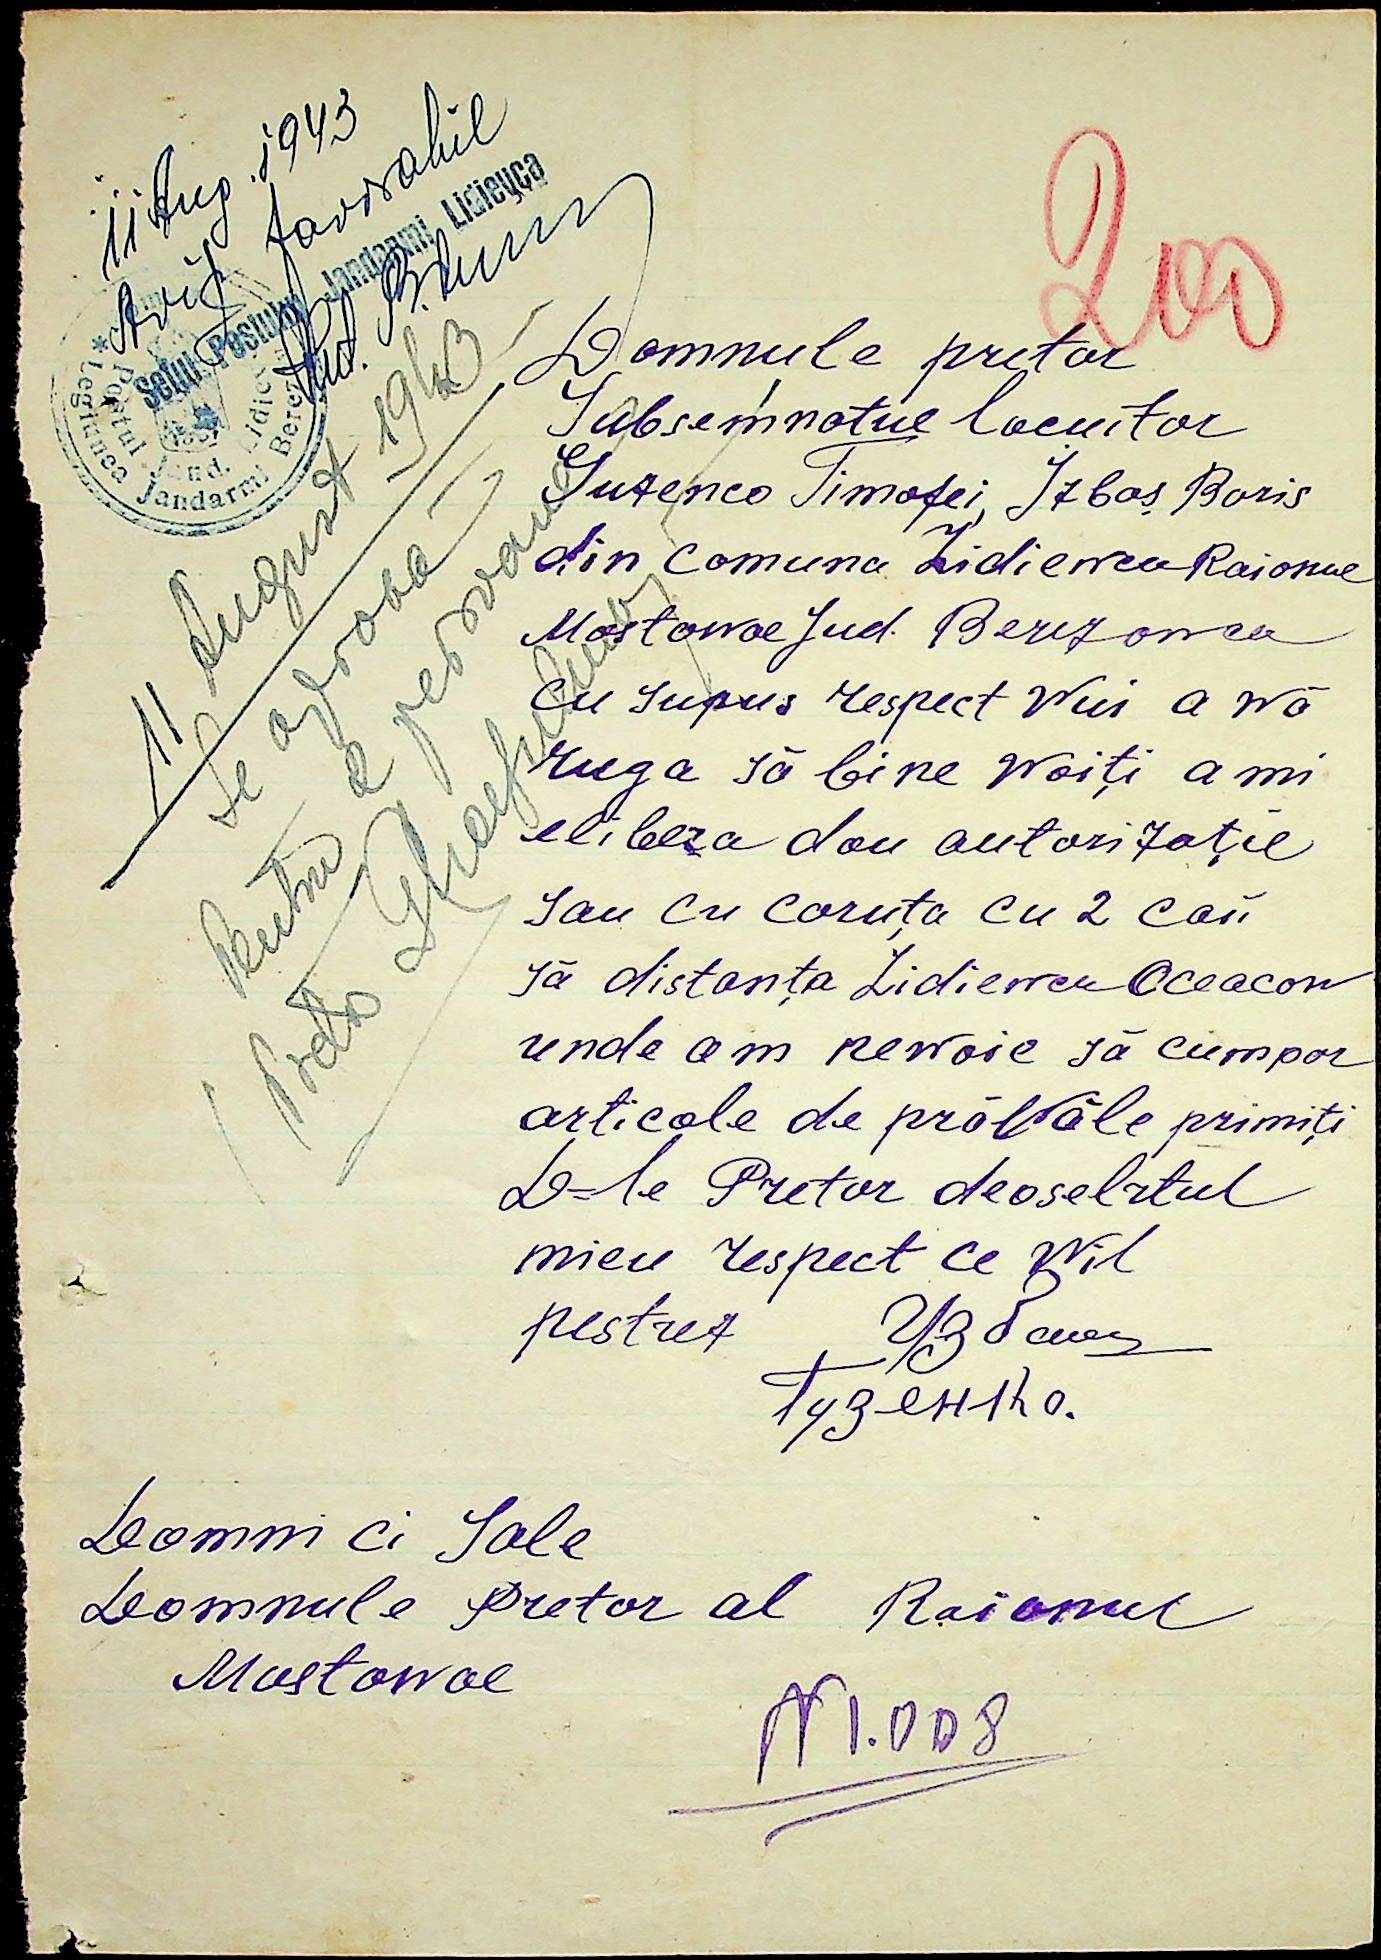 200
11 Aug. 1943
Aviz favorabil
Șeful Postului Jandarmi Lidieuca
Legiunea Jandarmi Berez
Postul Jand. Lidiev
11 August 1943
Se aproba
pentru 2 persoane
Domnule pretor
Subsemnatue locuitor
Guzenco Timofei, Izbaș Boris
din comuna Lidiewca Raionue
Mostowoe Jud. Berezowca
cu supus respect Win a wă
ruga să bine woiți a mi
elibera dou autorizație
sau cu caruța cu 2 cai
să distanța Lidiewca Oceacow
unde am newoie să cumpar
articole de prăvăle primiți
D=le Pretor deoselitul
mieu respect ce Wil
pestrez Избаш
Гузенко.
Domni ci Sale
Domnule Pretor al Raionul
Mostowoe
N 1.008